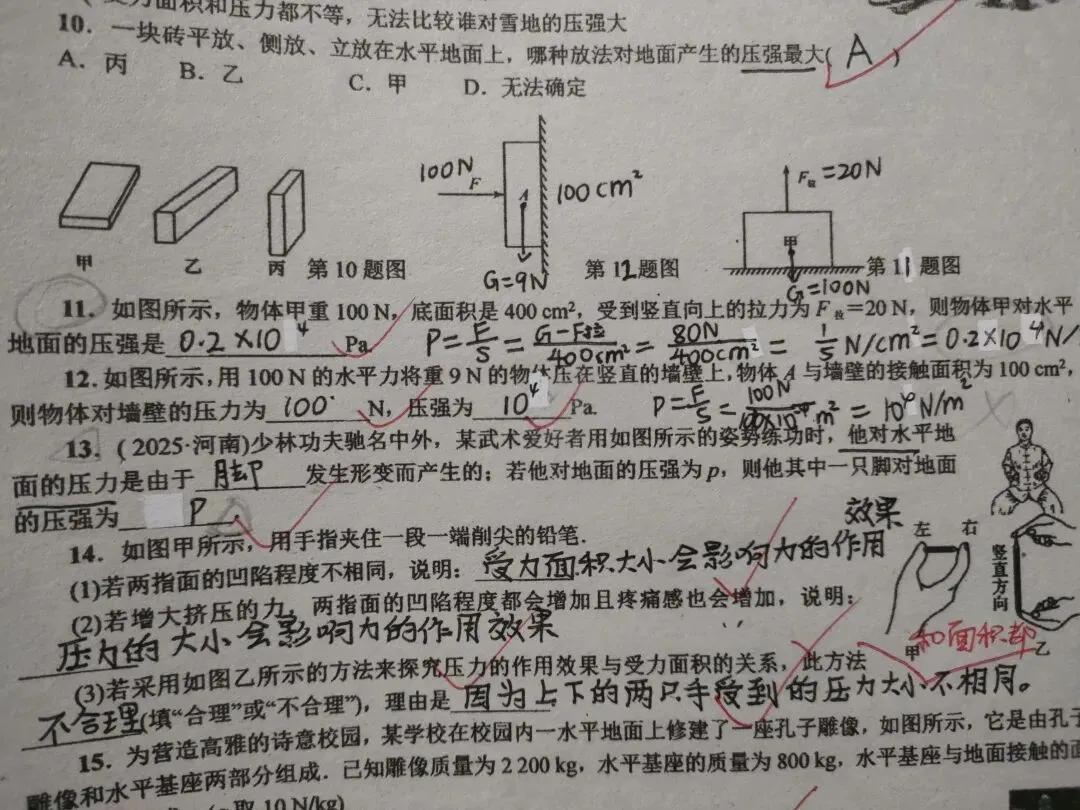 受力面积和压力都不等，无法比较谁对雪地的压强大
10．一块砖平放、侧放、立放在水平地面上，哪种放法对地面产生的压强最大( A )
A．丙 B．乙 C．甲 D．无法确定
100N F A 100cm² G=9N
F拉=20N 甲 G=100N
甲 乙 丙 第10题图 第12题图 第11题图
11．如图所示，物体甲重100 N，底面积是400 cm²，受到竖直向上的拉力为F拉=20 N，则物体甲对水平
地面的压强是 0.2×10⁴ Pa. P=F/S=G-F拉/400cm²=80N/400cm²=1/5 N/cm²=0.2×10⁴N/
12．如图所示，用100 N的水平力将重9 N的物体压在竖直的墙壁上，物体A与墙壁的接触面积为100 cm²，
则物体对墙壁的压力为 100 N，压强为 10⁴ Pa. P=F/S=100N/100×10⁻⁴m²=10⁴N/m²
13．(2025·河南)少林功夫驰名中外，某武术爱好者用如图所示的姿势练功时，他对水平地
面的压力是由于 脚 发生形变而产生的；若他对地面的压强为p，则他其中一只脚对地面
的压强为 P .
14．如图甲所示，用手指夹住一段一端削尖的铅笔．
(1)若两指面的凹陷程度不相同，说明：受力面积大小会影响力的作用效果
(2)若增大挤压的力，两指面的凹陷程度都会增加且疼痛感也会增加，说明：
压力的大小会影响力的作用效果
左 右 竖直方向 甲 乙
和面积都
(3)若采用如图乙所示的方法来探究压力的作用效果与受力面积的关系，此方法
不合理(填“合理”或“不合理”)，理由是 因为上下的两只手受到的压力大小不相同。
15．为营造高雅的诗意校园，某学校在校园内一水平地面上修建了一座孔子雕像，如图所示，它是由孔子
雕像和水平基座两部分组成．已知雕像质量为2 200 kg，水平基座的质量为800 kg，水平基座与地面接触的面
取10 N/kg)